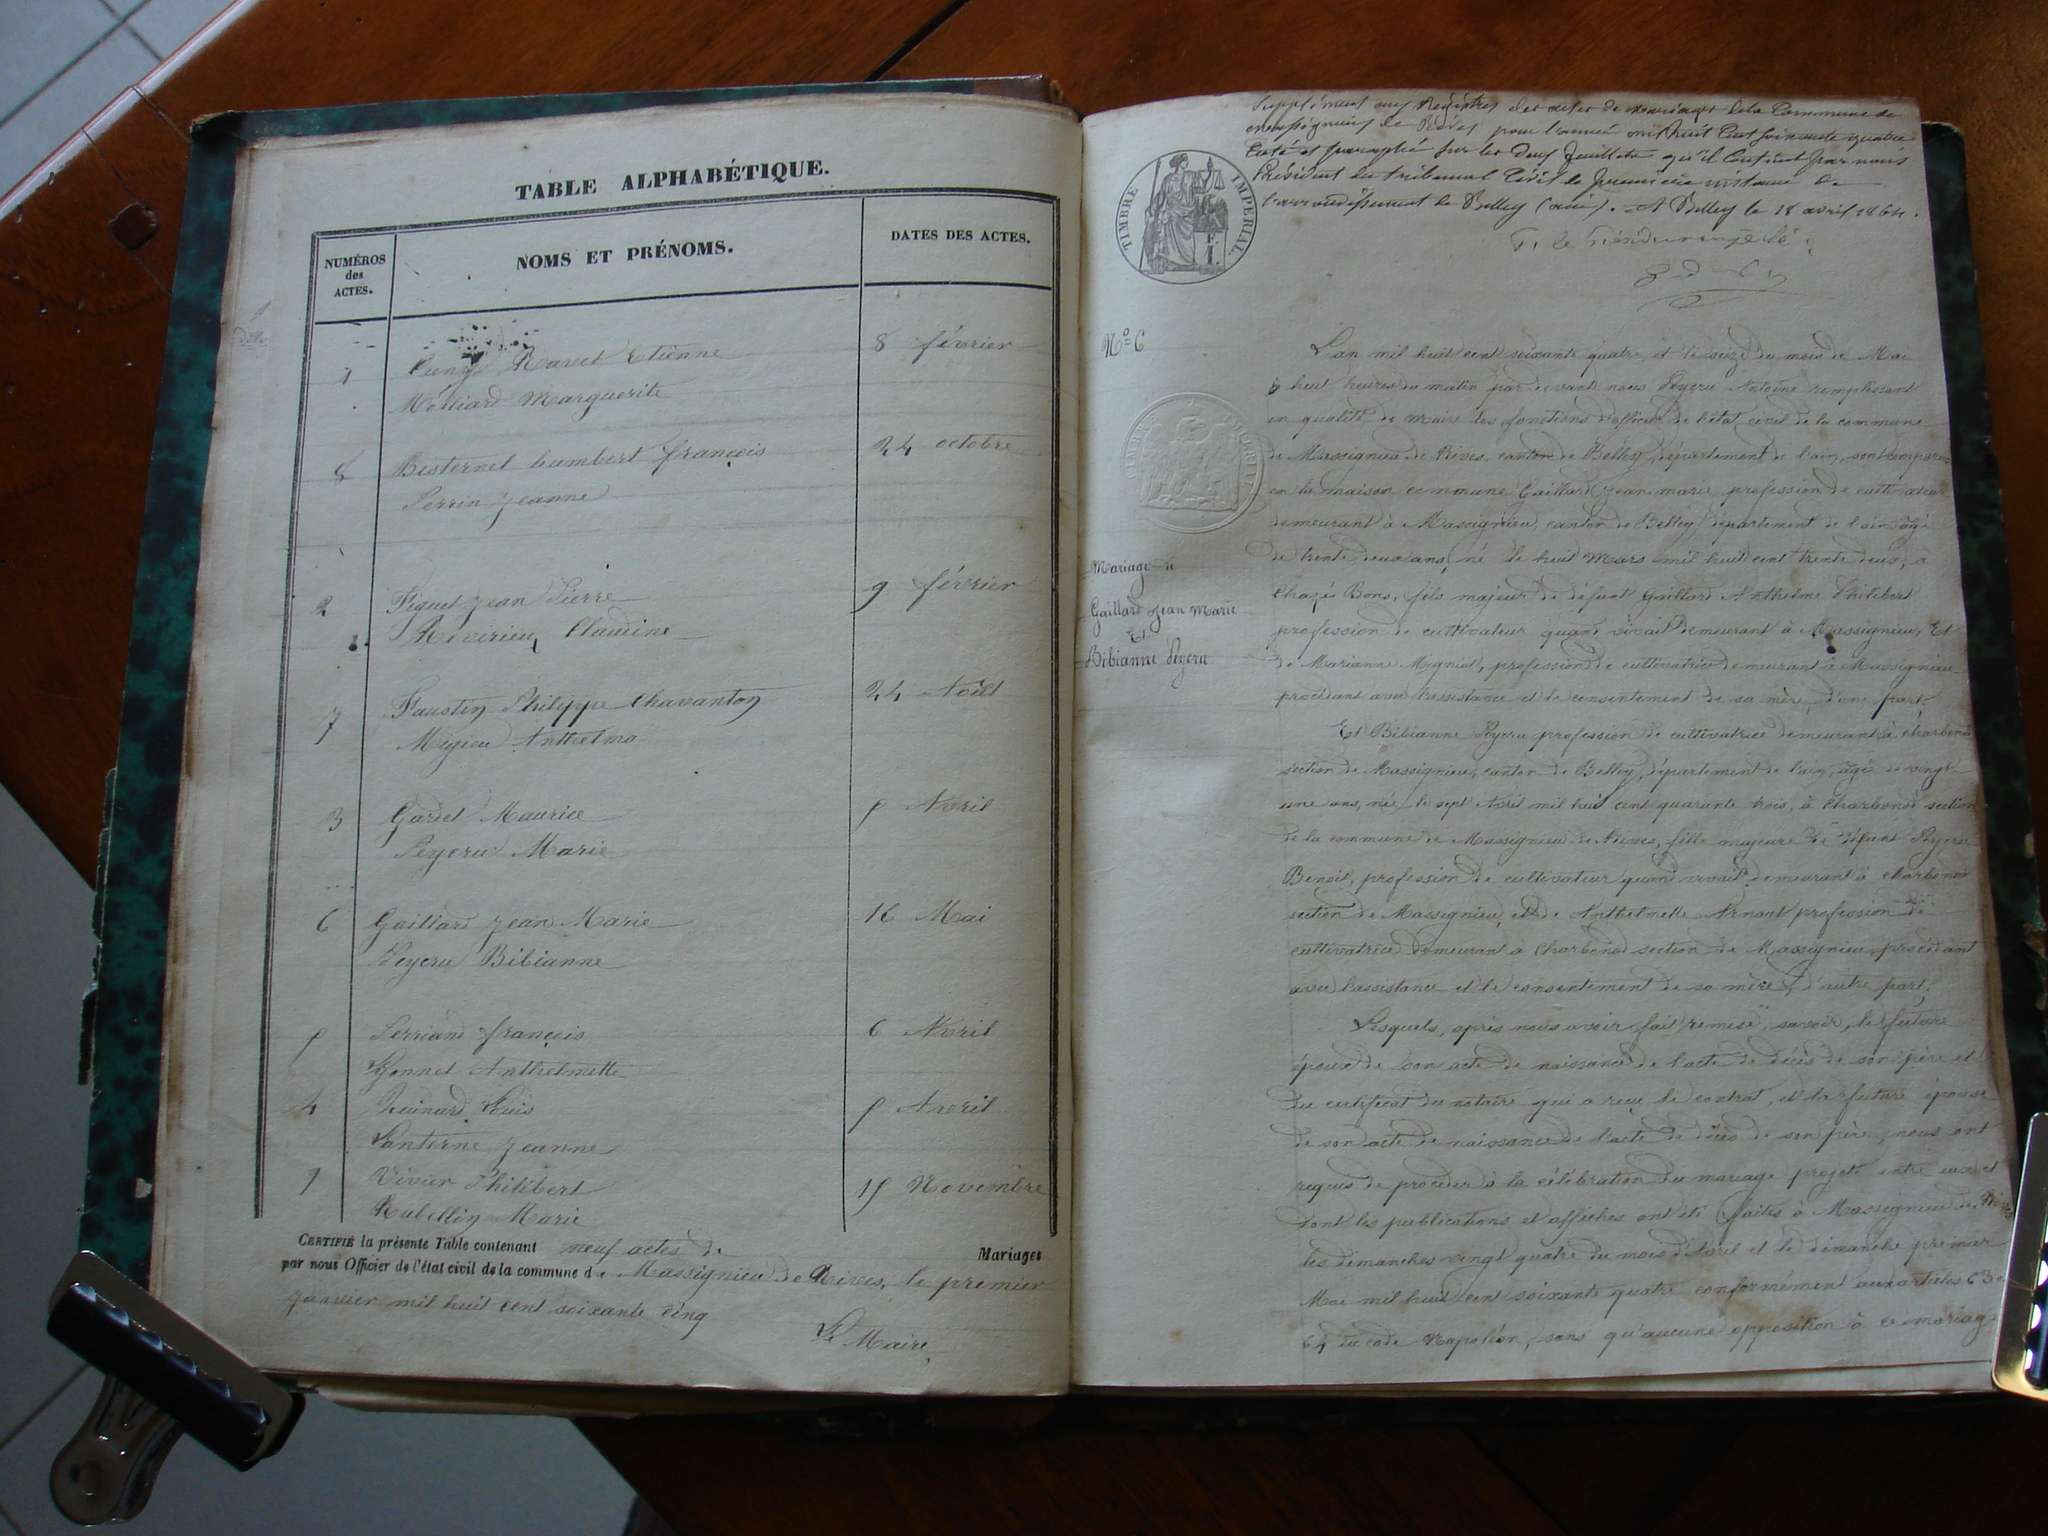 TABLE ALPHABÉTIQUE.
NUMÉROS
des
ACTES.
NOMS ET PRÉNOMS.
DATES DES ACTES.
1 Ravet Etienne 8 février
Marguerite
8 Bisternel humbert françois 24 octobre
Perrin Jeanne
2 Figuet Jean Pierre 9 février
Claudine
7 Faustin Philippe Chavanton 24 Août
Migieu Anthelma
3 Gardet Maurice 5 Avril
Peyeru Marie
6 Gaillard Jean Marie 16 Mai
Peyeru Bibianne
5 françois 6 Avril
Gonnet Anthelmette
4 Louis 5 Avril
Lanterne Jeanne
9 Vivier Philibert 15 Novembre
Rubellin Marie
CERTIFIÉ la présente Table contenant neuf actes de Mariages
par nous Officier de l'état civil de la commune de Massignieu de Rives, le premier
Janvier mil huit cent soixante cinq
Le Maire,
Supplément aux Registres des actes de mariage de la Commune de
Massignieu de Rives pour l'année mil huit Cent soixante quatre
Coté et paraphé sur les deux feuillets qu'il Contient par nous
Président du tribunal Civil de première instance de
l'arrondissement de Belley (ain). A Belley le 18 avril 1864.
TIMBRE IMPERIAL
N° 6
Mariage de
Gaillard Jean Marie
Et
Bibianne Peyeru
L'an mil huit cent soixante quatre et le seize du mois de Mai
à huit heures du matin par devant nous Peyeru Antoine remplissant
en qualité de maire les fonctions d'officier de l'état civil de la commune
de Massignieu de Rives canton de Belley, département de l'ain, sont comparus
en la maison commune Gaillard Jean marie profession de cultivateur
demeurant à Massignieu, canton de Belley, département de l'ain âgé
de trente deux ans, né le huit Mars mil huit cent trente deux, à
Chazé Bons, fils majeur de défunt Gaillard Anthelme Philibert
profession de cultivateur quand vivait demeurant à Massignieu, Et
de Marianne Mignot, profession de cultivatrice demeurant à Massignieu
procédant avec l'assistance et le consentement de sa mère, d'une part,
Et Bibianne Peyeru profession de cultivatrice demeurant à charbonod
section de Massignieu, canton de Belley, département de l'ain, âgée de vingt
une ans, née le sept Avril mil huit cent quarante trois, à charbonod section
de la commune de Massignieu de Rives, fille majeure de défunt Peyeru
Benoit, profession de cultivateur quand vivait demeurant à charbonod
section de Massignieu, et de Anthelmette Arnaut profession de
cultivatrice demeurant à charbonod section de Massignieu, procédant
avec l'assistance et le consentement de sa mère, d'autre part,
Lesquels, après nous avoir fait remise, savoir, le futur
époux de son acte de naissance de l'acte de décès de son père et
du certificat du notaire qui a reçu le contrat, et la future épouse
de son acte de naissance de l'acte de décès de son père, nous ont
requis de procéder à la célébration du mariage projeté entre eux et
dont les publications et affiches ont été faites à Massignieu de Rives
les dimanches vingt quatre du mois d'Avril et le dimanche premier
Mai mil huit cent soixante quatre conformément aux articles 63 e
64 du code Napoléon, sans qu'aucune opposition à ce mariage